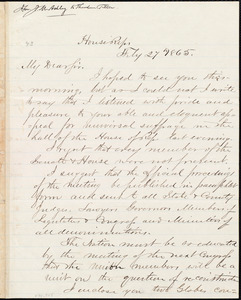 Hon J. M. Ashley to Theodore Tilton
House Reps
Feby 27 1865.
My Dear Sir,
I hoped to see you this
morning, but as I could not I write
to say that I listened with pride and
pleasure to your able and eloquent ap
peal for universal suffrage in the
hall of the House of Reps last evening.
I regret that every member of the
Senate & House were not present.
I suggest that the official proceedings
of the meeting be published in pamphlet
form and sent to all State & County
Judges, Lawyers, Governors, Members of
Legislature & Congress and Ministers of
all denominations.
The Nation must be so educated
by the meeting of the next Congress
that the Union members will be a
unit on the question of reconstruction
I enclose you two Globes con-